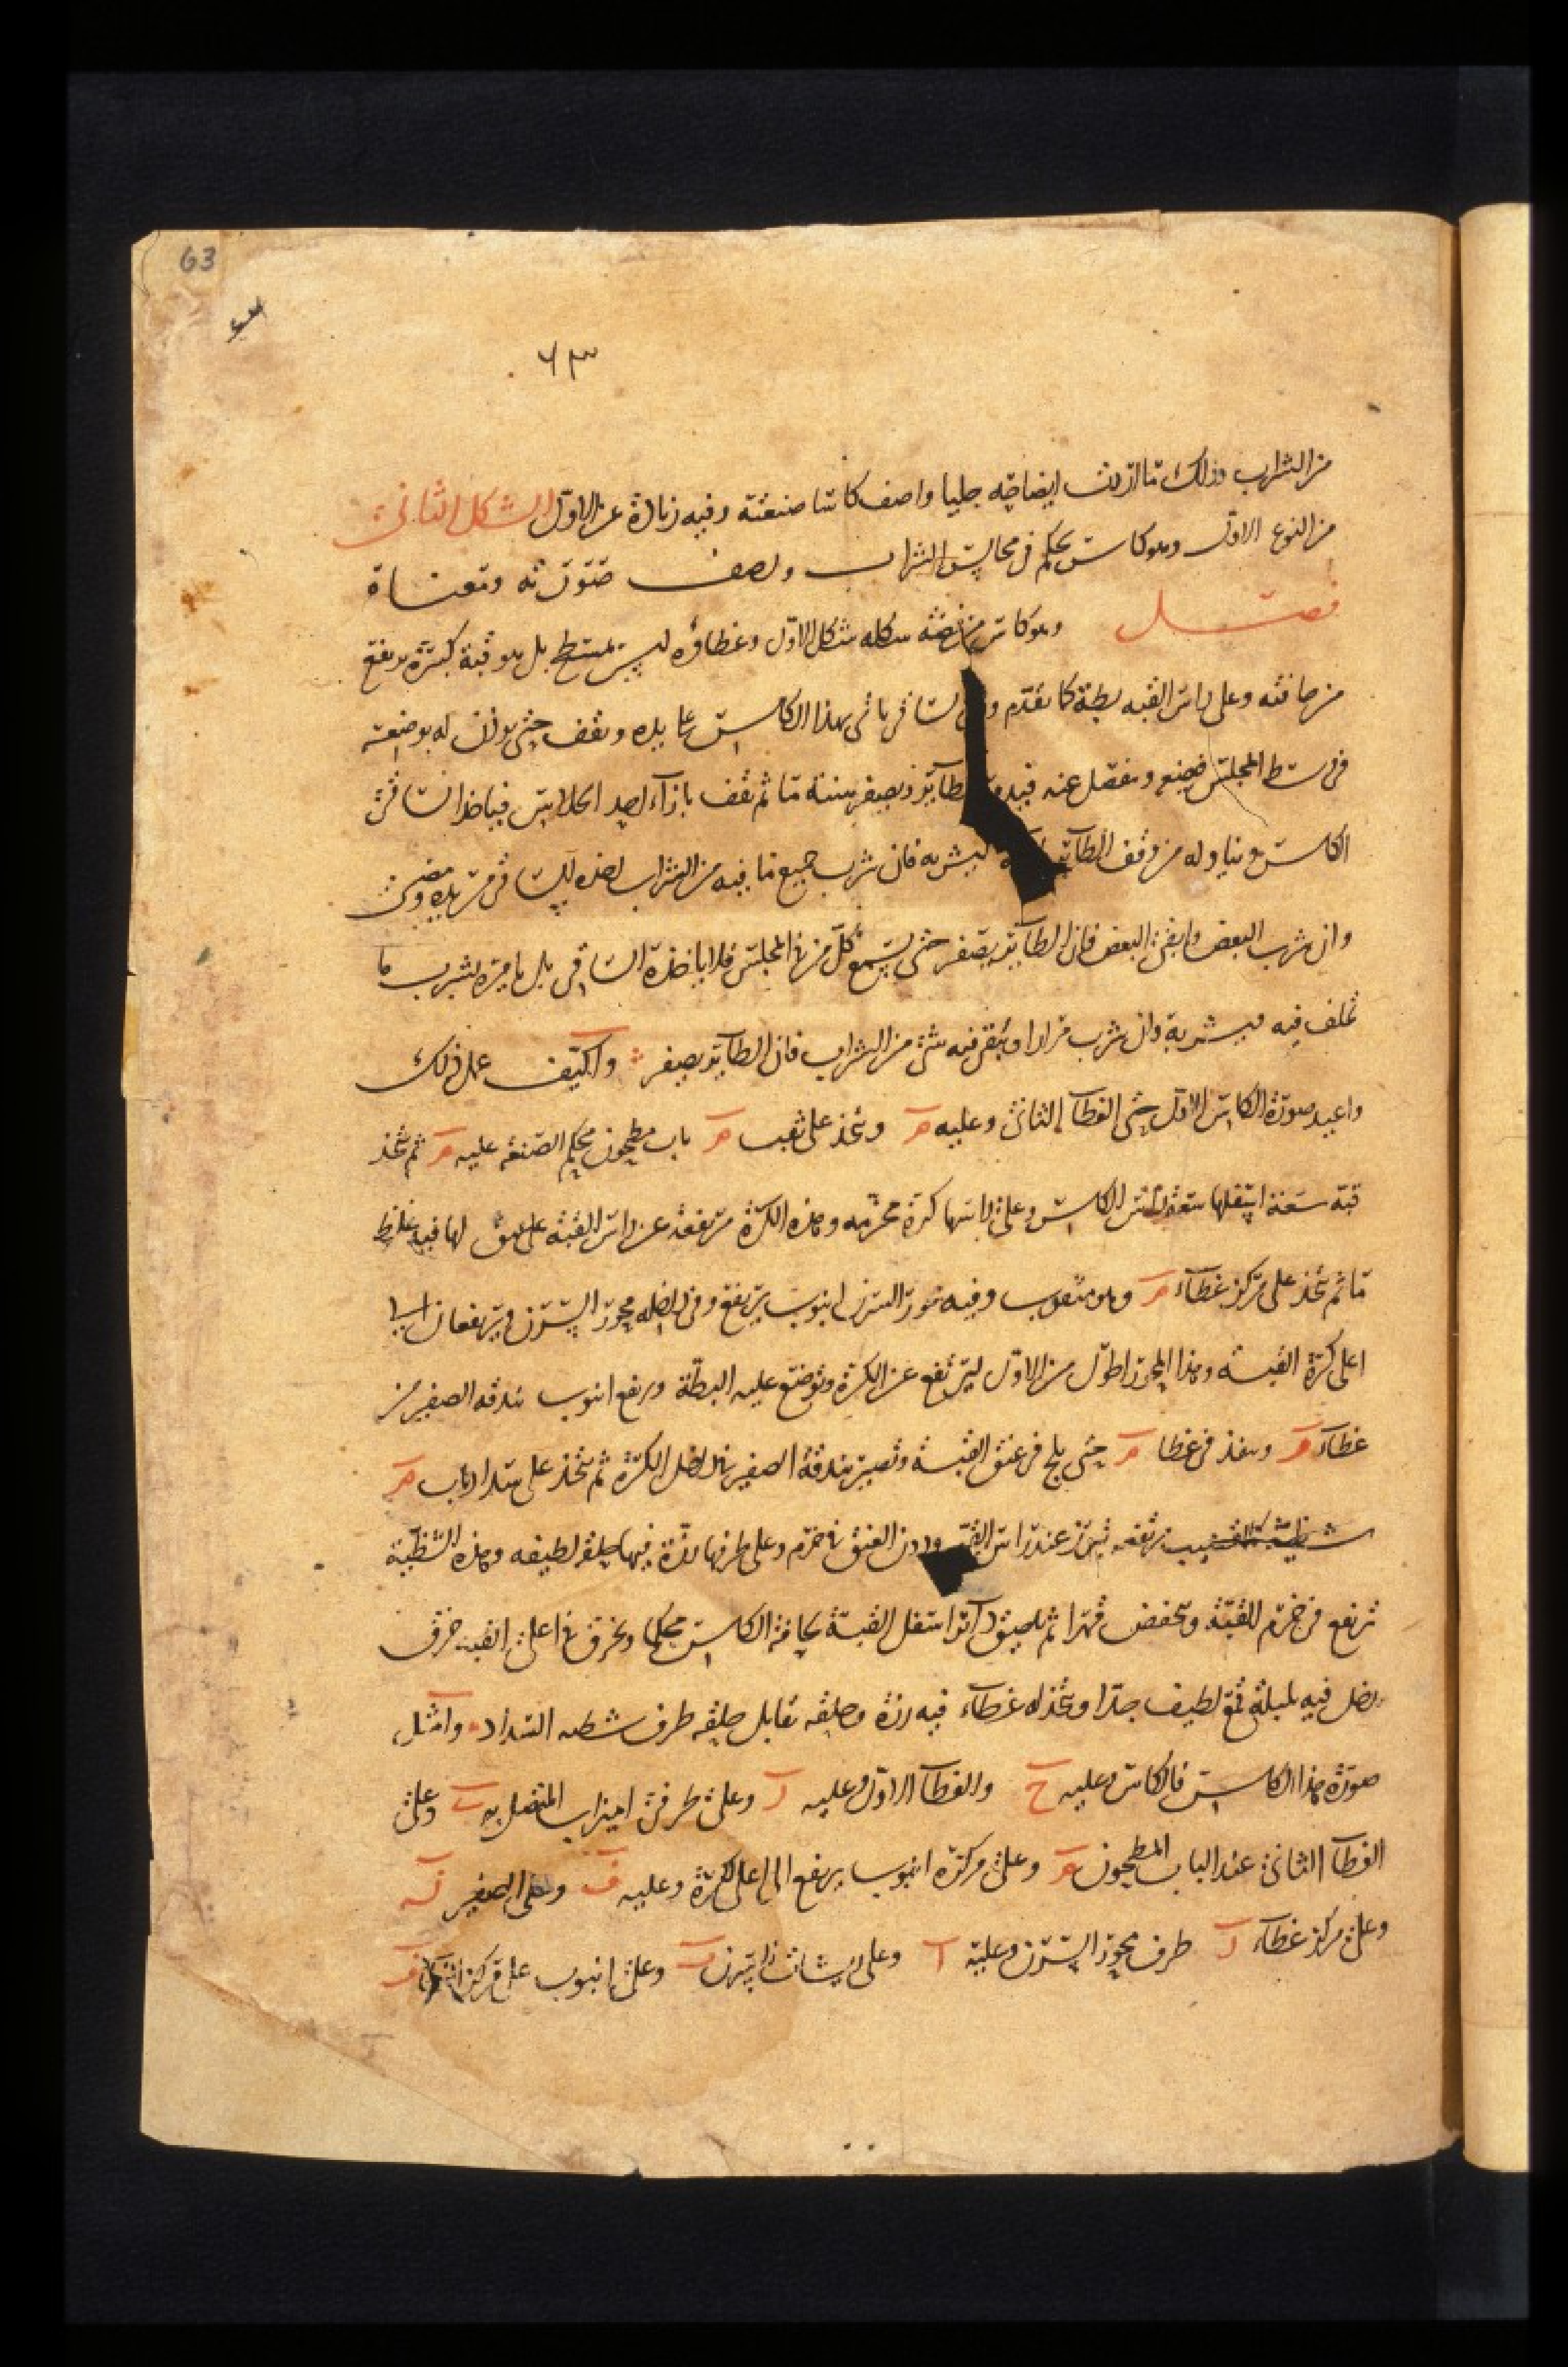 63
٦٣
من الشراب وذلك ما اردت ايضاحه جليا واصف كاسا صنعته وفيه زيادة عن الاول الشكل الثاني
من النوع الاول وهو كاس يحكم في مجالس الشراب وصف صورته ومعناه
فصل وهو كاس من فضة شكله شكل الاول وغطاؤه ليس بمسطح بل هو قبة كبيرة يرتفع
من حافته وعلى راس القبه بطة كما تقدم الساقي ياتي بهذا الكاس على يده ويقف حتى يوذن له بوضعه
في وسط المجلس فيضعه وينفصل عنه فيدور الطاير ويصفر هنية ما ثم يقف بازاء احد الجلاس فياخذ الساقي
الكاس ويناوله من وقف الطاير ليشربه فان شرب جميع ما فيه من الشراب اخذه الساقي من يده ومضى
وان شرب البعض وابقى البعض فان الطاير يصفر حتى يسمع كل من في المجلس فلا ياخذه الساقي بل يامره بشرب ما
تخلف فيه فيشربه وان شرب مرارا وبقى فيه شئ من الشراب فان الطاير يصفر وا كيف عمل ذلك
واعيد صورة الكاس الاول حتى الغطا الثاني وعليه م ويتخذ على ثقب م باب مطحون محكم الصنعه عليه م ثم يتخذ
قبة سعة اسفلها سعة راس الكاس وعلى راسها كرة مخرمه وهذه الكرة مرتفعة عن راس القبة على عنق لها فيه غلظ
ما ثم يتخذ على مركز غطاء م وهو مثقوب وفيه محور السرن انبوب يرتفع وفي داخله محور السرن ويرتفعان الى
اعلى كرة القبه وهذا المحور اطول من الاول ليرتفع عن الكرة وتوضع عليه البطة ويرفع انبوب بندقة الصفير من
غطاء م وينفذ في غطا م حتى يلج في عنق القبة وتصير بندقة الصفير في داخل الكرة ثم يتخذ على سداد باب م
شظية كالقضيب مرتفعه عند راس القبه ودون العنق في خرم وعلى طرفها رزة فيها حلقة لطيفه وهذه الشظية
ترتفع في خرم القبة وتنخفض قهرا ثم يلصق داير اسفل القبة بحافة الكاس محكما ويخرق في اعلى القبه خرق
يدخل فيه بلبلة قمع لطيف جدا ويتخذ له غطاء فيه رزة وحلقه تقابل حلقه طرف شظيه السداد وامثل
صورة هذا الكاس فالكاس وعليه ح والغطا الاول وعليه د وعلى طرفي الميزاب المتصل به ب وعلى
الغطا الثاني عند الباب المطحون م وعلى مركزه انبوب يرتفع الى اعلى الكرة وعليه ف وعلى الصفير
وعلى مركز غطاء د طرف محور السرن وعليه ا وعلى ريشات السرن وعلى انبوب على مركز